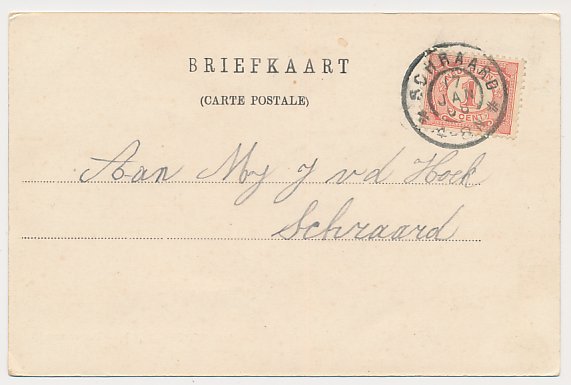 BRIEFKAART
(CARTE POSTALE)
SCHRAARD
JAN
1
CENT
Aan Mej J v d Hoek
Schraard